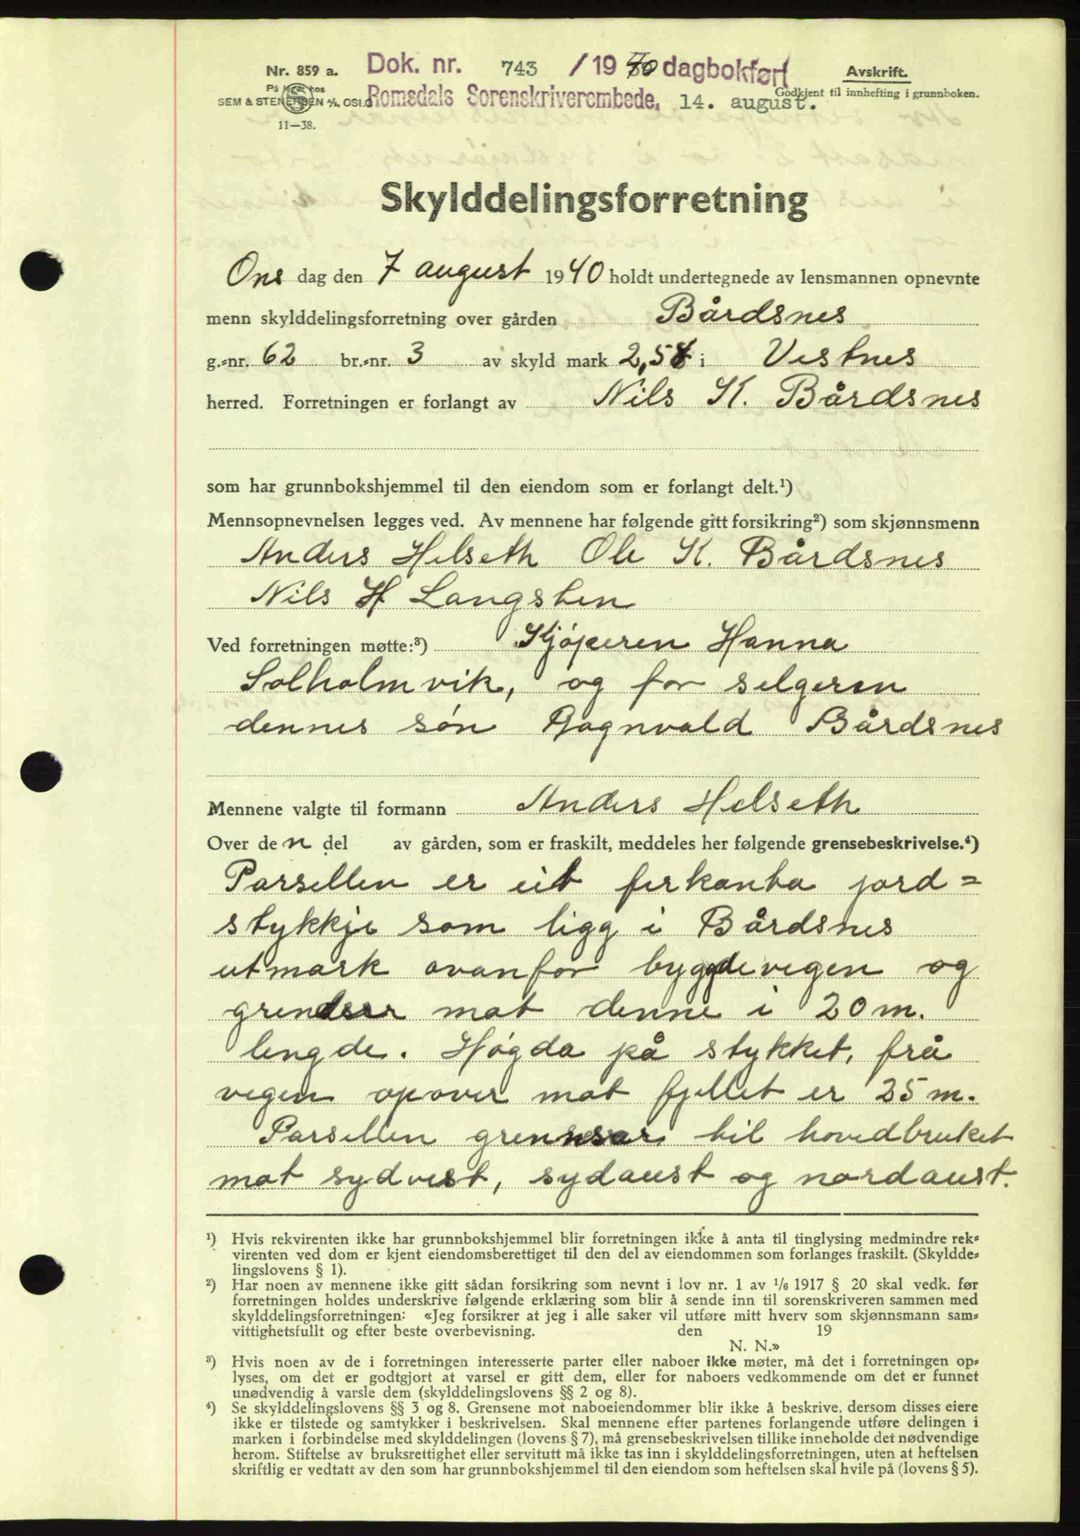 Nr. 859 a.
Dok. nr. 743 /1940 dagbokført
Avskrift.
SEM & STENERSEN A/S, OSLO
Romsdals Sorenskriverembede, 14. august.
Godkjent til innhefting i grunnboken.
11—38.
Skylddelingsforretning
Ons dag den 7 august 1940 holdt undertegnede av lensmannen opnevnte
menn skylddelingsforretning over gården Bårdsnes
g.-nr. 62 br.-nr. 3 av skyld mark 2,58 i Vestnes
herred. Forretningen er forlangt av Nils K. Bårdsnes
som har grunnbokshjemmel til den eiendom som er forlangt delt.¹)
Mennsopnevnelsen legges ved. Av mennene har følgende gitt forsikring²) som skjønnsmenn
Anders Helseth Ole K. Bårdsnes
Nils H Langsten
Ved forretningen møtte:³) Kjøperen Hanna
Solholmvik, og for selgeren
dennes søn Ragnvald Bårdsnes
Mennene valgte til formann Anders Helseth
Over den del av gården, som er fraskilt, meddeles her følgende grensebeskrivelse.⁴)
Parsellen er eit firkanta jord=
stykkje som ligg i Bårdsnes
utmark ovanfor bygdevegen og
grenser mot denne i 20 m.
lengde. Høgda på stykket, frå
vegen opover mot fjellet er 25 m.
Parsellen grensar til hovedbruket
mot sydvest, sydaust og nordaust.
¹) Hvis rekvirenten ikke har grunnbokshjemmel blir forretningen ikke å anta til tinglysing medmindre rek-
virenten ved dom er kjent eiendomsberettiget til den del av eiendommen som forlanges fraskilt. (Skyldde-
lingslovens § 1).
²) Har noen av mennene ikke gitt sådan forsikring som nevnt i lov nr. 1 av 1/6 1917 § 20 skal vedk. før
forretningen holdes underskrive følgende erklæring som blir å sende inn til sorenskriveren sammen med
skylddelingsforretningen: «Jeg forsikrer at jeg i alle saker vil utføre mitt hverv som skjønnsmann sam-
vittighetsfullt og efter beste overbevisning. den 19
N. N.»
³) Hvis noen av de i forretningen interesserte parter eller naboer ikke møter, må det i forretningen op-
lyses, om det er godtgjort at varsel er gitt dem, eller for naboers vedkommende om det er funnet
unødvendig å varsle dem (skylddelingslovens §§ 2 og 8).
⁴) Se skylddelingslovens §§ 3 og 8. Grensene mot naboeiendommer blir ikke å beskrive, dersom disses eiere
ikke er tilstede og samtykker i beskrivelsen. Skal mennene efter partenes forlangende utføre delingen i
marken i forbindelse med skylddelingen (lovens § 7), må grensebeskrivelsen tillike inneholde det nødvendige
herom. Stiftelse av bruksrettighet eller servitutt må ikke tas inn i skylddelingsforretningen, uten at heftelsen
skriftlig er vedtatt av den som har grunnbokshjemmel til den eiendom som heftelsen skal hvile på (lovens § 5).